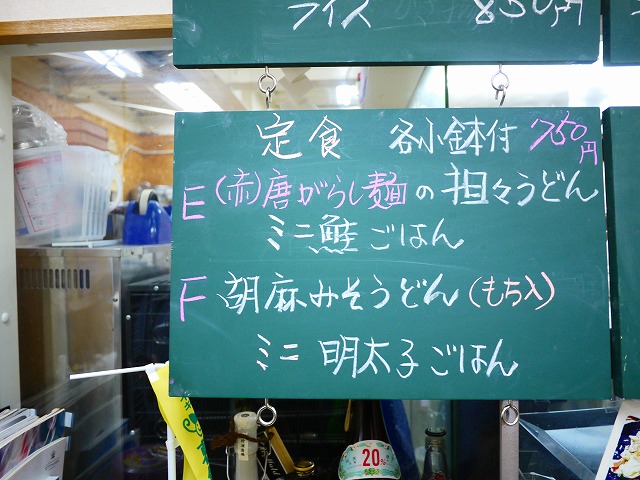 ライス 850円
定食 各小鉢付 750円
E (赤)唐がらし麺の担々うどん
ミニ鮭ごはん
F 胡麻みそうどん(もち入)
ミニ 明太子ごはん
20%